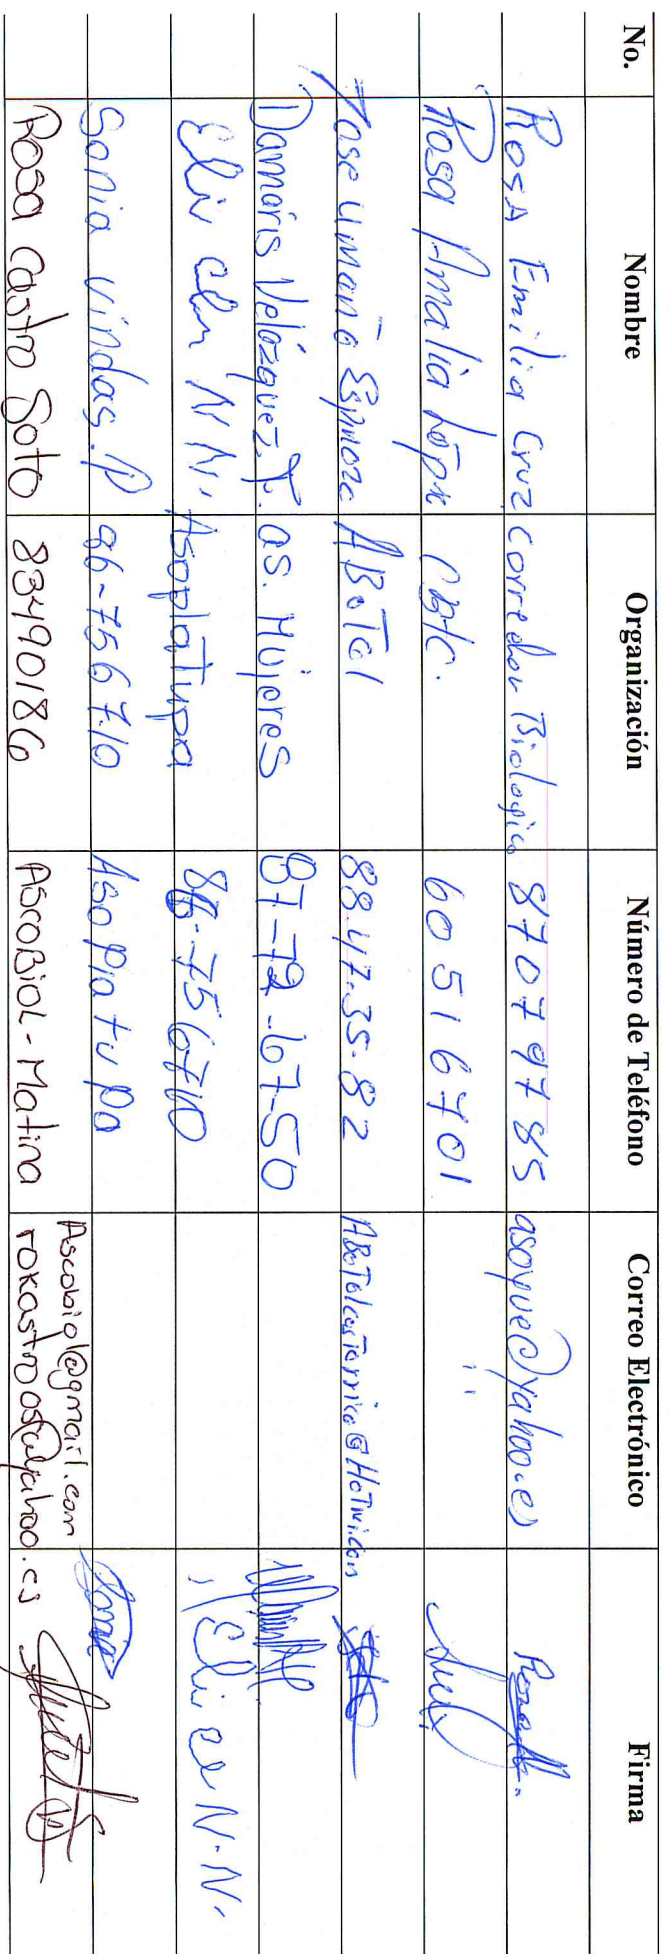 No. Nombre Organización Número de Teléfono Correo Electrónico Firma
Rosa Emilia Cruz Corredor Biologico 87079785 asoyue@yahoo.es
Rosa Amalia Lópx 60516701 "
Jose umaña Espinoza ABoTal 88.47.35.82
Damaris Velázquez. T. as. Mujeres 87-72-67-50
N N, Asoplatupa 86-756710
Sonia vindas. P 86-756710 Asoplatupa Sonia
Rosa Castro Soto 83490186 ASCOBIOL-Matina Ascobiol@gmail.com
rokastros@yahoo.es